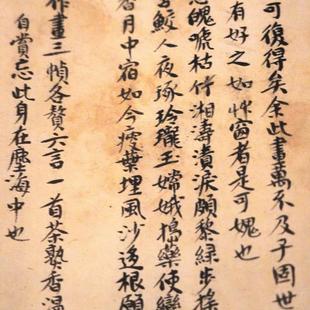 可復得矣余此畫萬不及子固世
有好之如艸窗者是可媿也
魄唬枯竹湘濤潰淚頗黎綠步搖
鮫人夜琢玲瓏玉嫦娥搗藥使鸞
香月中宿如今瘦葉埋風沙逶根願
作畫三幀各贅六言一首茶熟香溫
自賞忘此身在塵海中也